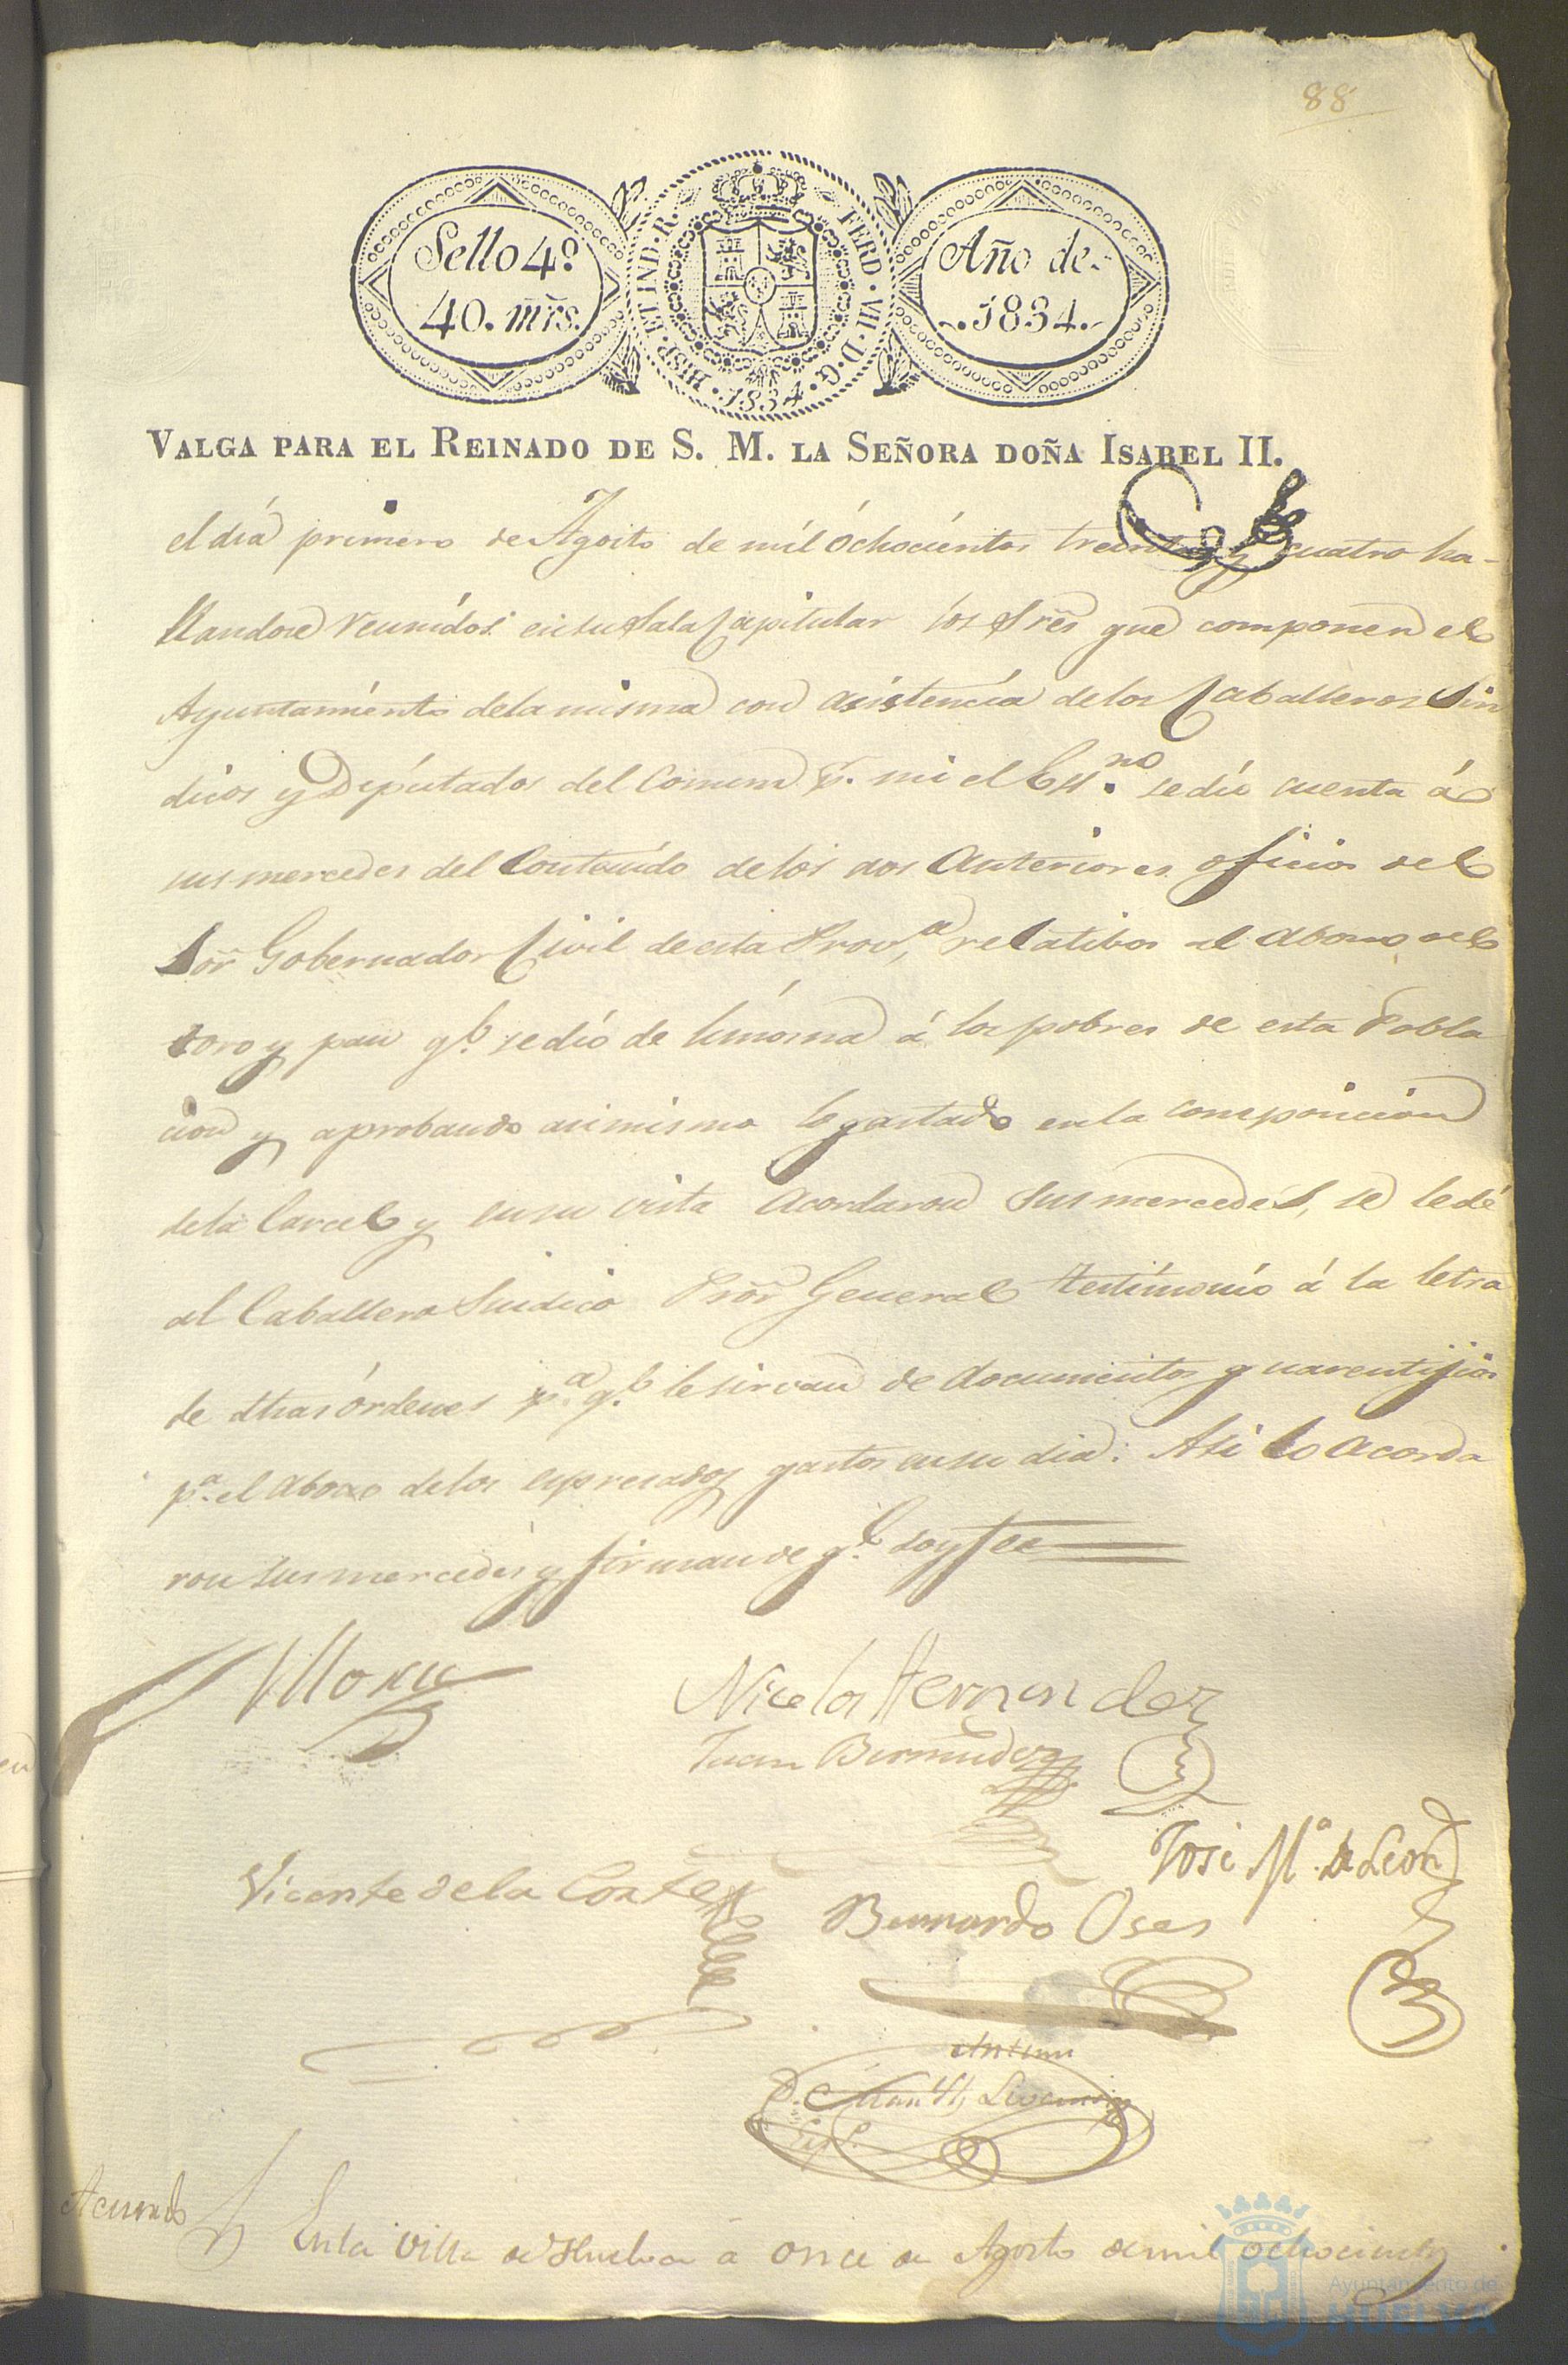 88
Sello 4º
40. mrs.
HISP. ET IND. R. FERD. VII. D. G. 1834.
Año de
1834.
VALGA PARA EL REINADO DE S. M. LA SEÑORA DOÑA ISABEL II.
el día primero de Agosto de míl óchocíentos treinta y cuatro ha-
llandose reunídos en su Sala Capitular los Sres que componen el
Ayuntamíento de la misma con asistencía de los Caballeros Sin
dicos y Depútados del Comun p. mi el Essno se dío cuenta á
sus mercedes del Conteńido de los dos anteriores oficios del
Sor Gobernador Civil de esta Prova relatibos al abono del
toro y pan qe. se dió de limosna á los pobres de esta Pobla
cion y aprobando asimismo lo gastado en la composicion
de la Carcel y en su vista acordaron sus mercedes, se le dé
al Caballero Sindico Pror General testímonío á la letra
de dhas órdenes pa. qe. le sirvan de documentos guarentijios
pa. el abono de los espresados gastos en su dia: Asi lo acorda
ron sus mercedes y firman de qe. doy fee
Nicolas Hernandez
Juan Bermudez
José Mª. de Leon
Vicente de la Corte
Bernardo Oses
Antemi
Acuerdo
En la villa de Huelva á once de Agosto de mil ochocientos
Ayuntamiento de
HUELVA